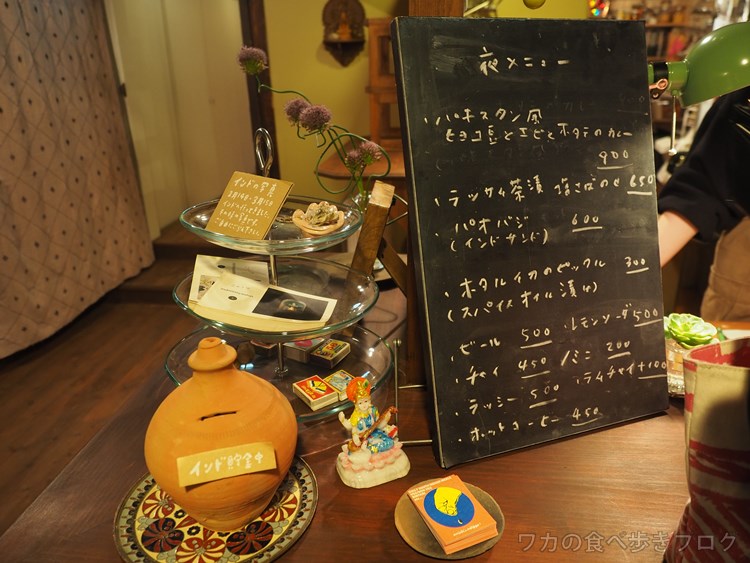 夜メニュー
・パキスタン風
ヒヨコ豆とエビとホタテのカレー
900
・ラッサム茶漬 塩さばのせ 650
・パオバジ
(インドサンド) 600
・ホタルイカのピックル 300
(スパイスオイル漬け)
・ビール 500 ・レモンソーダ 500
・チャイ 450 /ミニ 200
・ラッシー 500 ・ラムチャイ +100
・ホットコーヒー 450
インドの写真
インド貯金中
ワカの食べ歩きブログ